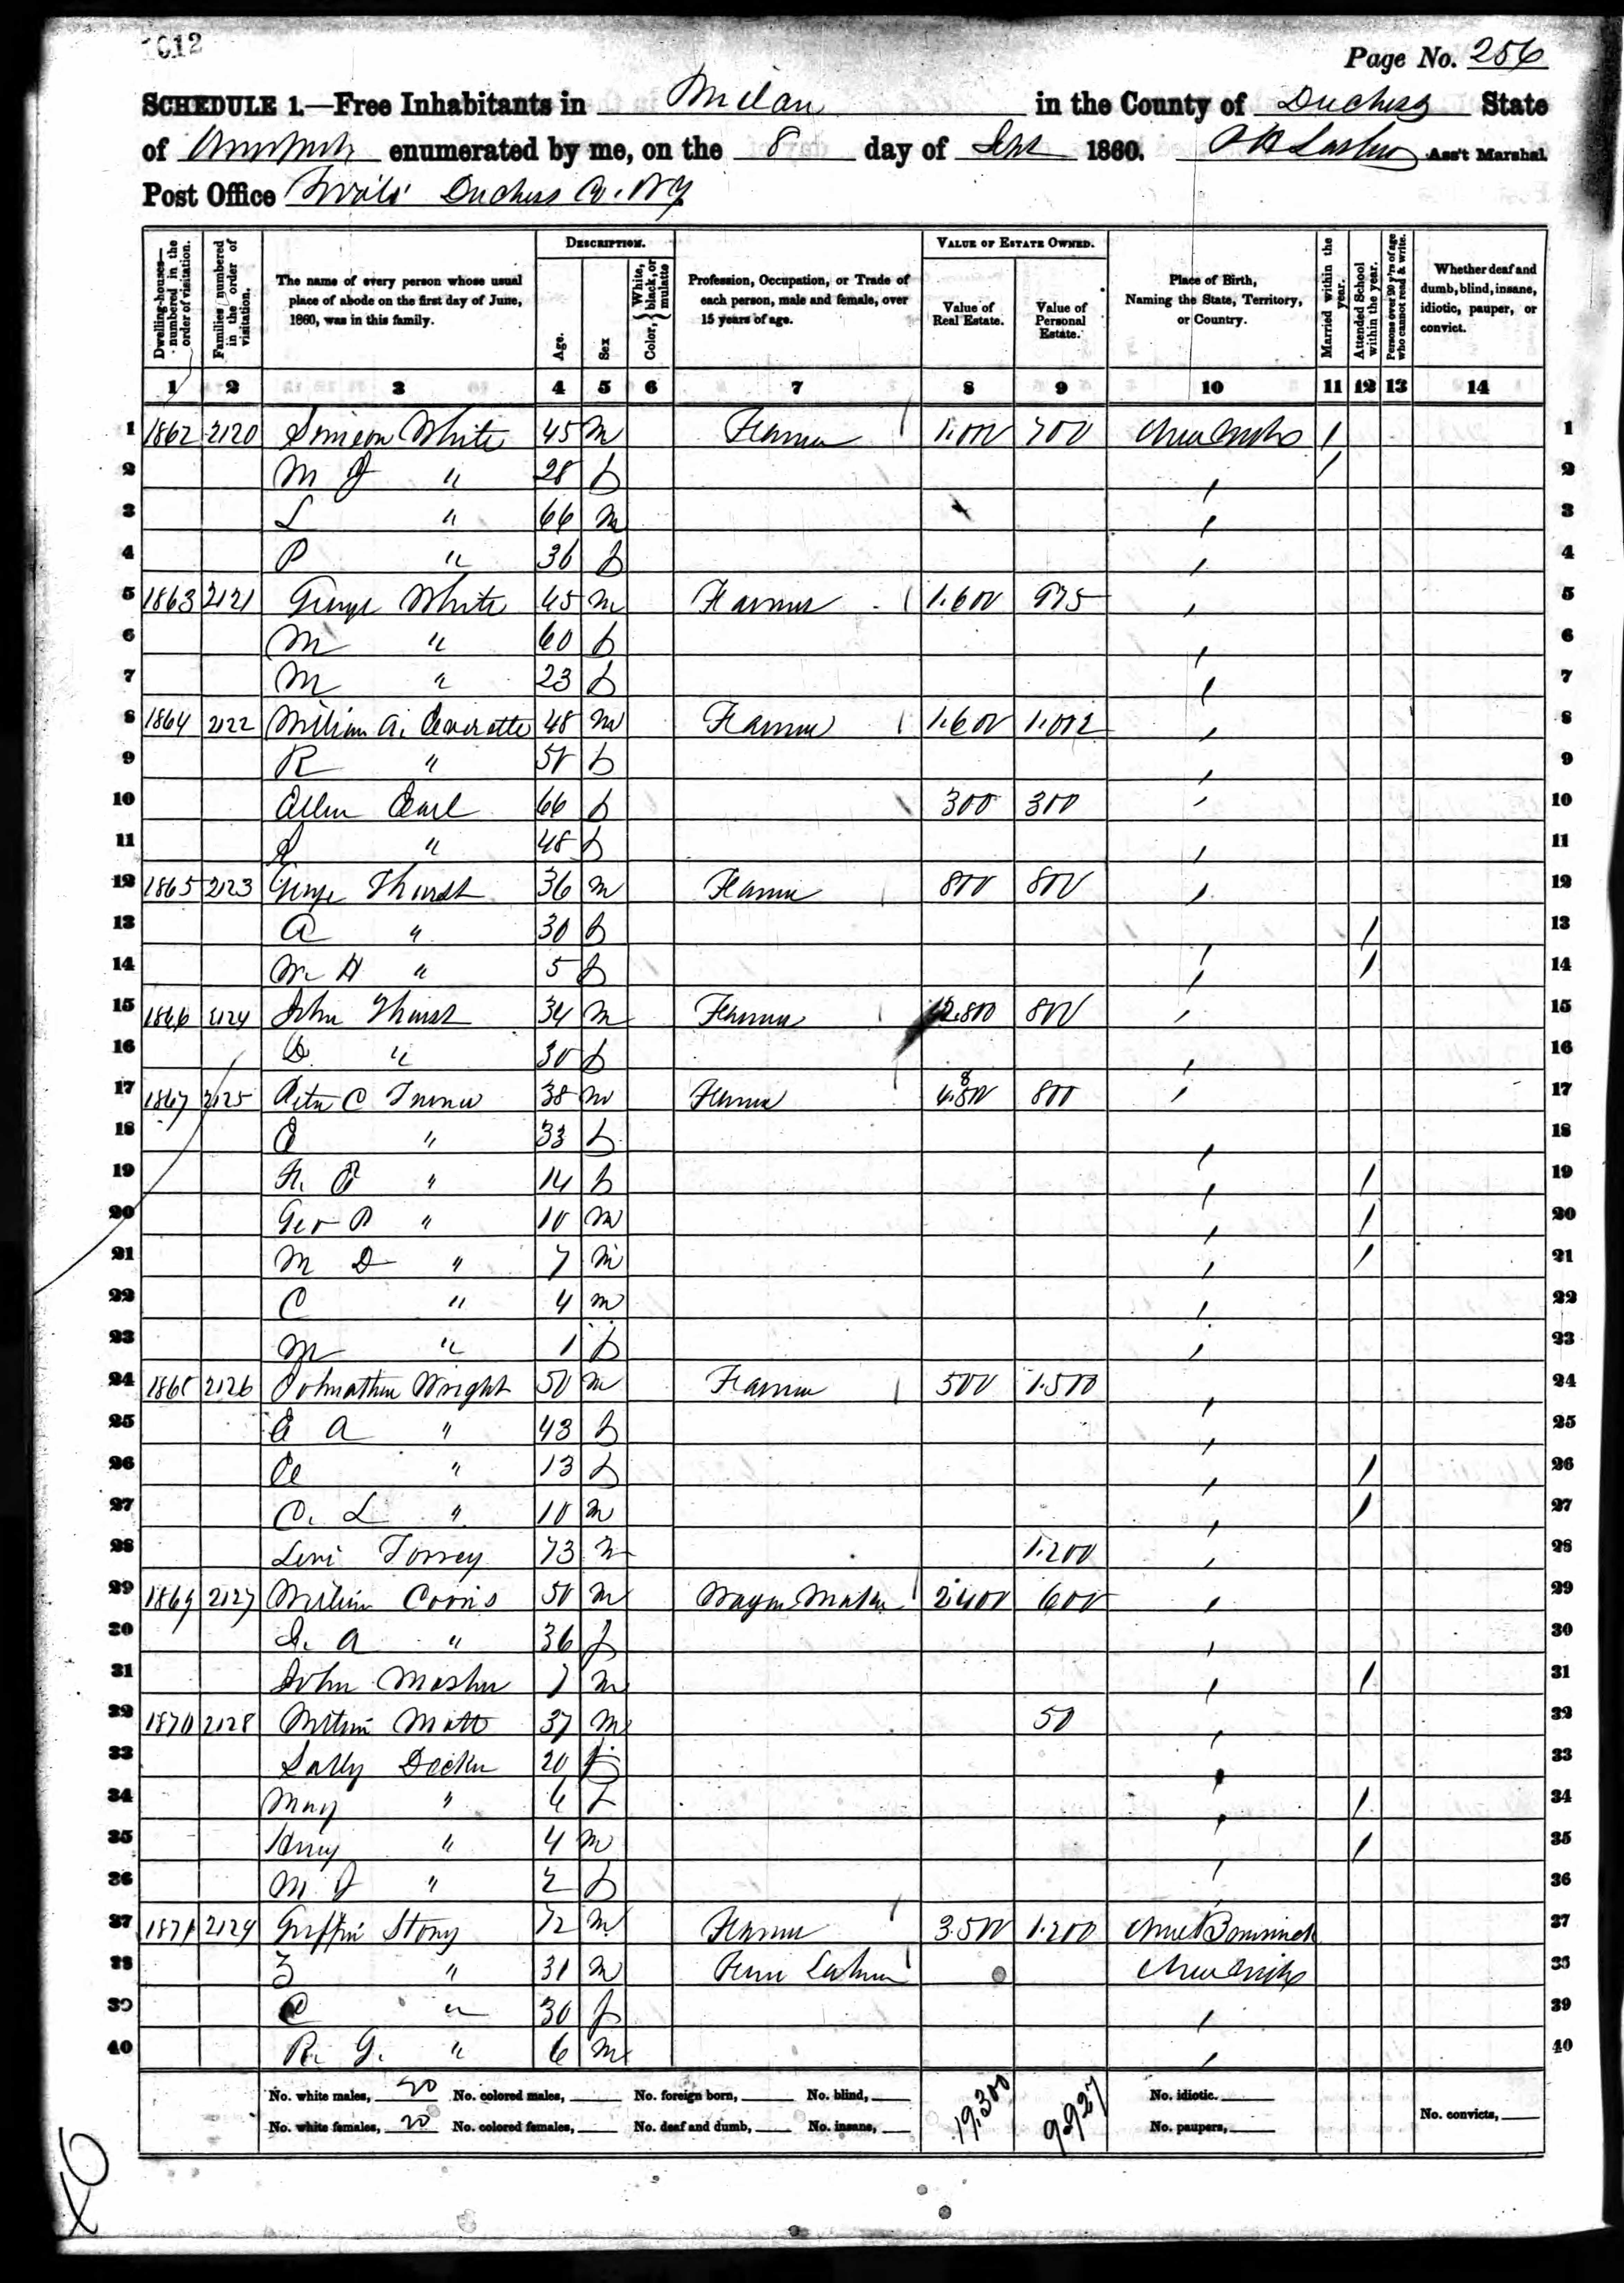 1012
Page No. 256
SCHEDULE 1.—Free Inhabitants in Milan in the County of Duchess State
of enumerated by me, on the 8 day of Sept 1860. Ass't Marshal.
Post Office Duchess Co. NY
Dwelling-houses—numbered in the order of visitation.
Families numbered in the order of visitation.
The name of every person whose usual place of abode on the first day of June, 1860, was in this family.
DESCRIPTION.
Age.
Sex
Color, White, black, or mulatto
Profession, Occupation, or Trade of each person, male and female, over 15 years of age.
VALUE OF ESTATE OWNED.
Value of Real Estate.
Value of Personal Estate.
Place of Birth, Naming the State, Territory, or Country.
Married within the year.
Attended School within the year.
Persons over 20 y'rs of age who cannot read & write.
Whether deaf and dumb, blind, insane, idiotic, pauper, or convict.
1 2 3 4 5 6 7 8 9 10 11 12 13 14
1 1862 2120 Simeon White 45 m Farmer 1.000 700 New York / 1
2 M J " 28 f / 2
3 L " 66 m 3
4 P " 36 f 4
5 1863 2121 George White 45 m Farmer 1.600 975 5
6 M " 60 f 6
7 M " 23 f 7
8 1864 2122 William A. 48 m Farmer 1.600 1.002 8
9 R " 50 f 9
10 Allen Earl 66 f 300 300 10
11 " 48 f 11
12 1865 2123 George 36 m Farmer 800 800 12
13 A " 30 f / 13
14 M H " 5 f / 14
15 1866 2124 John 34 m Farmer 2.800 800 15
16 " 30 f 16
17 1867 2125 Peter C 38 m Farmer 800 17
18 " 33 f 18
19 " 14 f / 19
20 Geo P " 10 m / 20
21 M D " 7 m / 21
22 C " 4 m 22
23 M " 1 f 23
24 1868 2126 Johnathan Wright 50 m Farmer 500 1.500 24
25 E A " 43 f 25
26 " 13 f / 26
27 C. L " 10 m / 27
28 Levi Torrey 73 m 1.200 28
29 1869 2127 William Coons 50 m Wagon Maker 2.400 600 29
30 A " 36 f 30
31 John Mosher 7 m / 31
32 1870 2128 37 m 50 32
33 Sally Decker 20 f 33
34 Mary " 6 f / 34
35 Henry " 4 m / 35
36 M J " 2 f 36
37 1871 2129 Griffin Story 72 m Farmer 3.500 1.200 New Brunswick 37
38 Z " 31 m Farm Laborer New York 38
39 C " 30 f 39
40 R. G. " 6 m 40
No. white males, 20 No. colored males, No. foreign born, No. blind, 19,300 9927 No. idiotic.
No. white females, 20 No. colored females, No. deaf and dumb, No. insane, No. paupers, No. convicts,